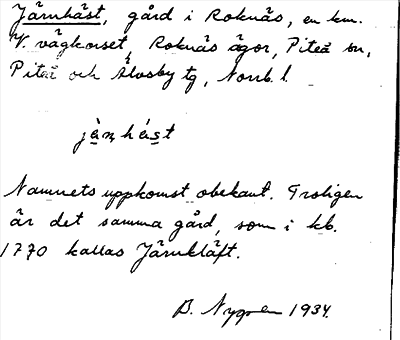 Järnhäst, gård i Roknäs, en km.
V. vägkorset, Roknäs ägor, Piteå sn,
Piteå och Älvsby tg, Norrb. l.
Namnets uppkomst obekant. Troligen
är det samma gård, som i kb.
1770 kallas Järnkläft.
B. Nygren 1934.